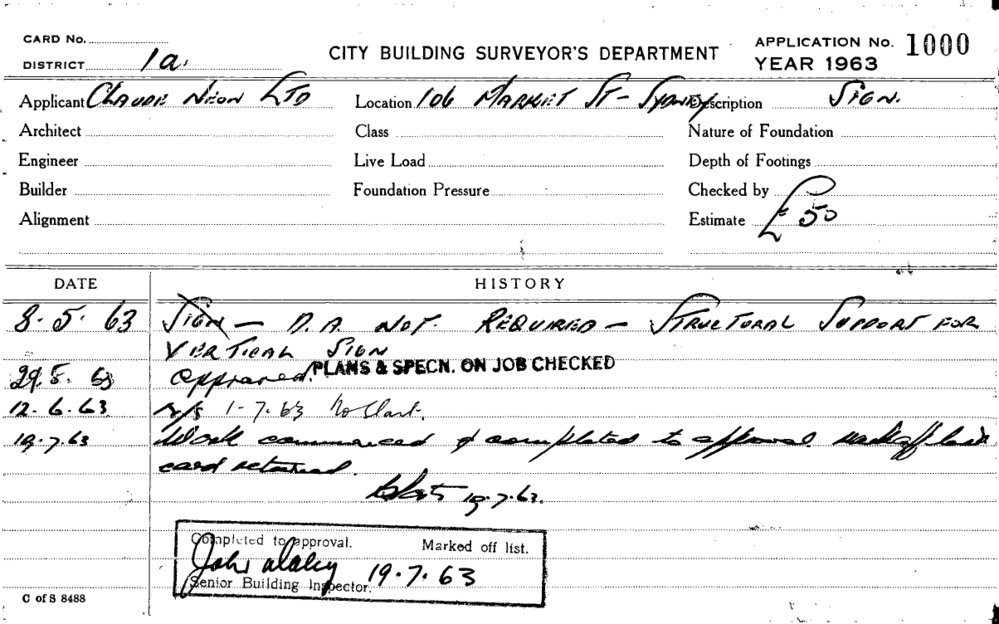 CARD No.
DISTRICT 1a.
CITY BUILDING SURVEYOR'S DEPARTMENT
APPLICATION No. 1000
YEAR 1963
Applicant Claude Neon Ltd Location 106 Market St - Sydney Description Sign.
Architect Class Nature of Foundation
Engineer Live Load Depth of Footings
Builder Foundation Pressure Checked by
Alignment Estimate £50
DATE HISTORY
8.5.63 Sign - D.A. not. Required - Structural Support for
Vertical Sign
29.5.63 Approved. PLANS & SPECN. ON JOB CHECKED
12.6.63 N/S 1-7.63 No Start.
19.7.63 Work commenced & completed to approval
card returned.
19.7.63.
Completed to approval. Marked off list.
John 19.7.63
Senior Building Inspector.
C of S 8488